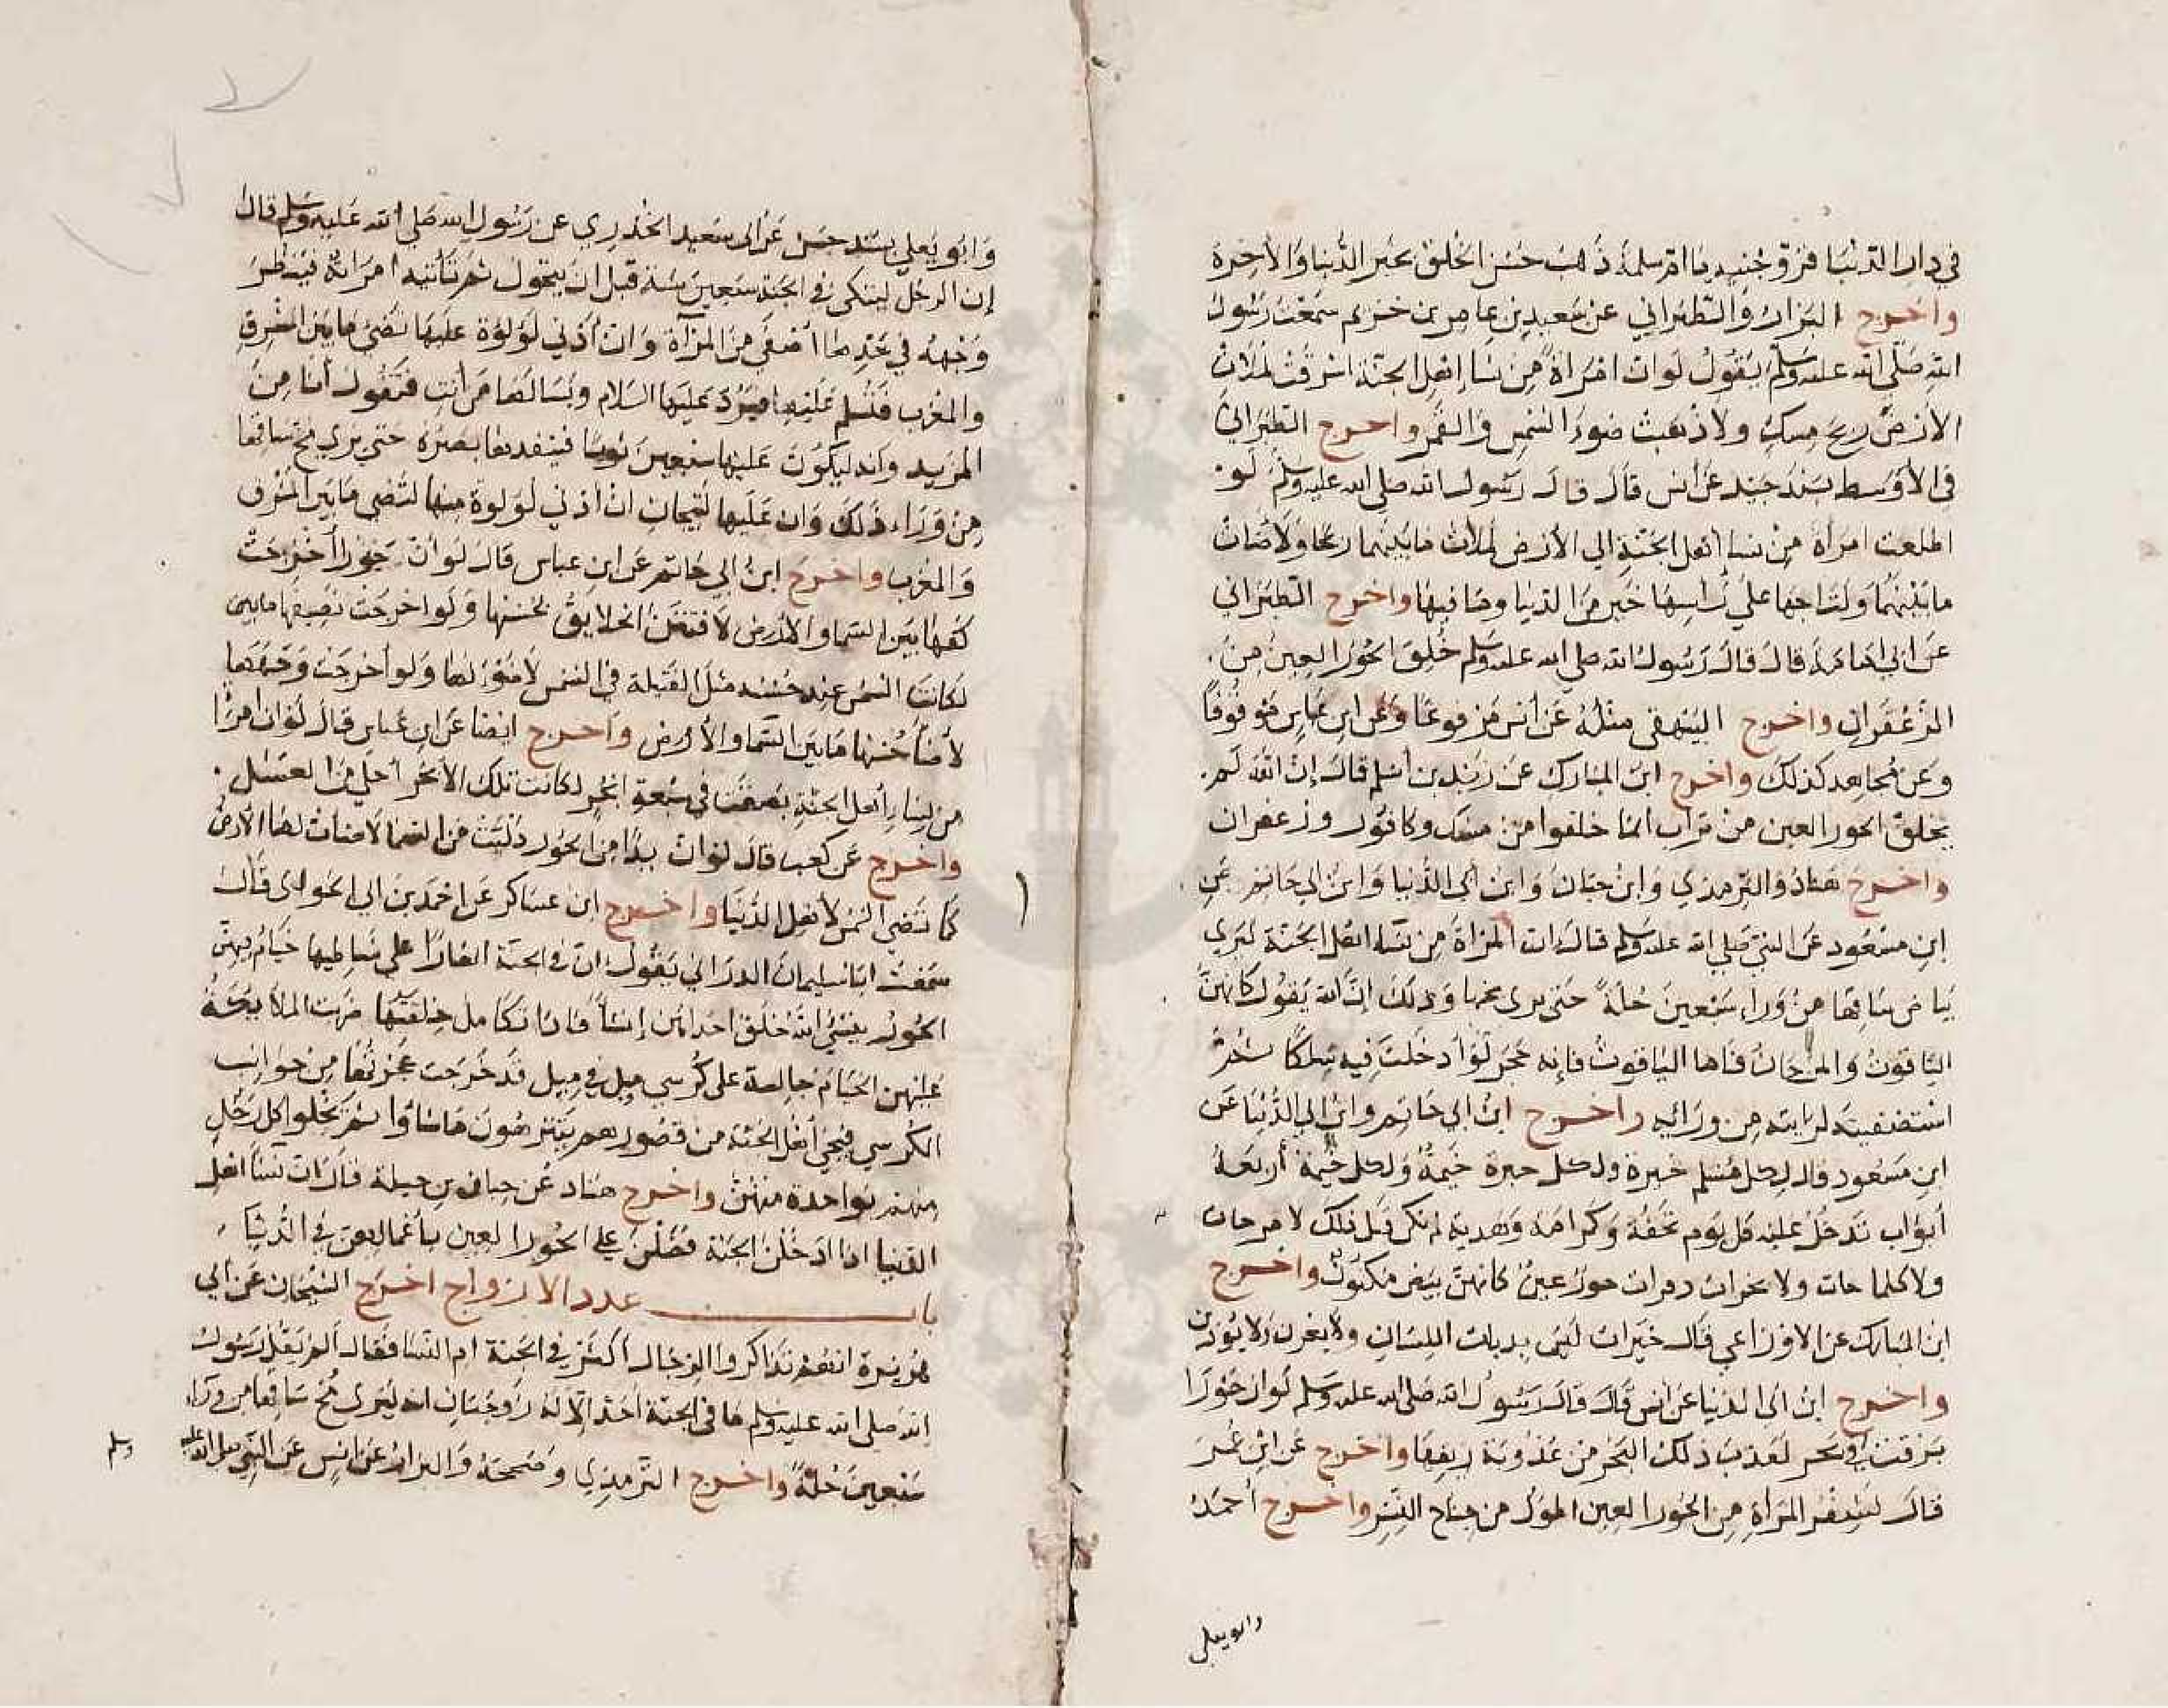 في دار الدنيا فزوجنيه يا ام سلمة ذهب حسن الخلق بخير الدنيا والاخرة
واخرج البزار والطبراني عن سعيد بن عامر بن خزيم سمعت رسول
الله صلى الله عليه وسلم يقول لو ان امراة من نسا اهل الجنة اشرقت لملات
الارض ريح مسك ولاذهبت ضوء الشمس والقمر واخرج الطبراني
في الاوسط بسند جيد عن انس قال قال رسول الله صلى الله عليه وسلم لو
اطلعت امراة من نسا اهل الجنة الي الارض لملات ما بينهما ريحا ولاضات
ما بينهما ولتاجها علي راسها خير من الدنيا وما فيها واخرج الطبراني
عن ابي امامة قال قال رسول الله صلى الله عليه وسلم خلق الحور العين من
الزعفران واخرج البيهقى مثله عن انس مرفوعا وعن ابن عباس موقوفا
وعن مجاهد كذلك واخرج ابن المبارك عن زيد بن اسلم قال ان الله لم
يخلق الحور العين من تراب انما خلقوا من مسك وكافور وزعفران
واخرج هناد والترمذي وابن حبان وابن ابي الدنيا وابن ابي حاتم عن
ابن مسعود عن النبي صلى الله عليه وسلم قال ان المراة من نساء اهل الجنة ليري
بياض ساقها من وراء سبعين حلة حتى يرى مخها وذلك ان الله يقول كانهن
الياقوت والمرجان فاما الياقوت فانه حجر لو ادخلت فيه سلكا ثم
استصفيته لرايته من ورائه واخرج ابن ابي حاتم وابن ابي الدنيا عن
ابن مسعود قال لكل مسلم خيرة ولكل خيرة خيمة ولكل خيمة اربعة
ابواب تدخل عليه كل يوم تحفة وكرامة وهدية لم تكن قبل ذلك لا مرحات
ولا طماحات ولا بخرات ولا ذفرات حور عين كانهن بيض مكنون واخرج
ابن المبارك عن الاوزاعي قال خيرات ليس بذيات اللسان ولا يغرن ولا يوذين
واخرج ابن ابى الدنيا عن انس قال قال رسول الله صلى الله عليه وسلم لو ان حورا
بزقت في بحر لعذب ذلك البحر من عذوبة ريقها واخرج عن ابن عمر
قال لشفر المراة من الحور العين اطول من جناح النسر واخرج احمد
وابو يعلي
وابو يعلي بسند حسن عن ابى سعيد الخدري عن رسول الله صلى الله عليه وسلم قال
إن الرجل ليتكى في الجنة سبعين سنة قبل ان يتحول ثم تاتيه امراة فينظر
وجهه في خدها اصفى من المرآة وان ادني لؤلؤة عليها تضئ ما بين المشرق
والمغرب فتسلم عليه فيرد عليها السلام ويسالها من انت فتقول انا من
المزيد وانه ليكون عليها سبعين ثوبا فينفدها بصره حتي يري مخ ساقها
من وراء ذلك وان عليها لتيجان ان ادني لؤلوة منها لتضى ما بين المشرق
والمغرب واخرج ابن ابي حاتم عن ابن عباس قال لو ان حورا اخرجت
كفها بين السما والارض لافتتن الخلايق بحسنها ولو اخرجت نصيفها
لكانت الشمس عند حسنه مثل الفتيلة في الشمس لا ضوء لها ولو اخرجت وجهها
لاضا حسنها ما بين السما والارض واخرج ايضا عن ابن عباس قال لو ان امراة
من نساء اهل الجنة بصقت في سبعة ابحر لكانت تلك الابحر احلي من العسل
واخرج عن كعب قال لو ان يدا من الحور دليت من السما لاضات لها الارض
كما تضي الشمس لاهل الدنيا واخرج ابن عساكر عن احمد بن ابي الحواري قال
سمعت ابا سليمان الدراني يقول ان في الجنة انهارا علي شاطيها خيام فيهن
الحور ينشئ الله خلق احداهن إنشا فاذا تكامل خلقها ضربت الملايكة
عليهن الخيام جالسة على كرسي ميل في ميل قد خرجت عجزتها من جوانب
الكرسي فيجئ اهل الجنة من قصورهم يتنزهون ما شاوا ثم يخلوا كل رجل
منهم بواحدة منهن واخرج هناد عن حبان بن جبلة قال ان نسا اهل
الدنيا اذا ادخلن الجنة فضلن علي الحور العين باعمالهن في الدنيا
باب عدد الازواج اخرج الشيخان عن ابي
هريرة انهم تذاكروا الرجال اكثر في الجنة ام النسا فقال الم يقل رسول
الله صلى الله عليه وسلم ما فى الجنة احد الا له زوجتان انه ليرى مخ ساقها من وراء
سبعين حلة واخرج الترمذي وصححه والبزار عن انس عن النبي صلى الله عليه
وسلم